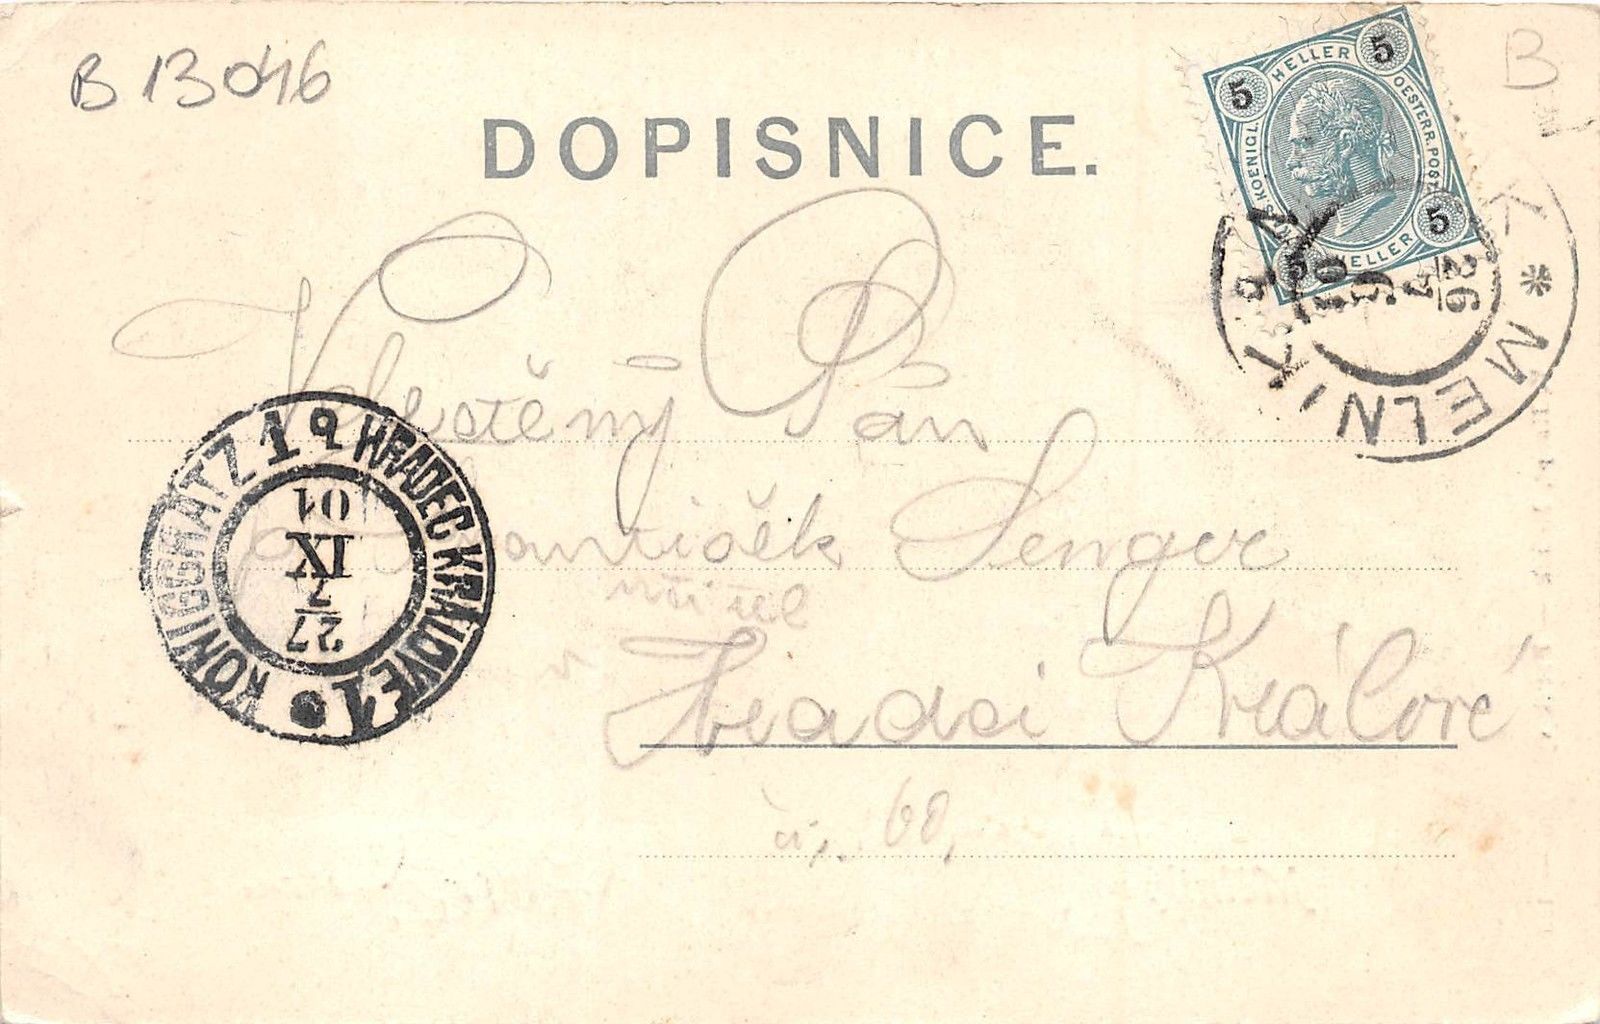 B 13046
B
DOPISNICE.
5 HELLER 5
OESTERR. POST
KOENIGL.
5 HELLER 5
MELNIK
26
9
01
Velectěný Pán
František Senger
učitel
v
Hradci Králové
č. 68.
HRADEC KRÁLOVÉ 1
KÖNIGGRÄTZ 1
27
7
IX
01